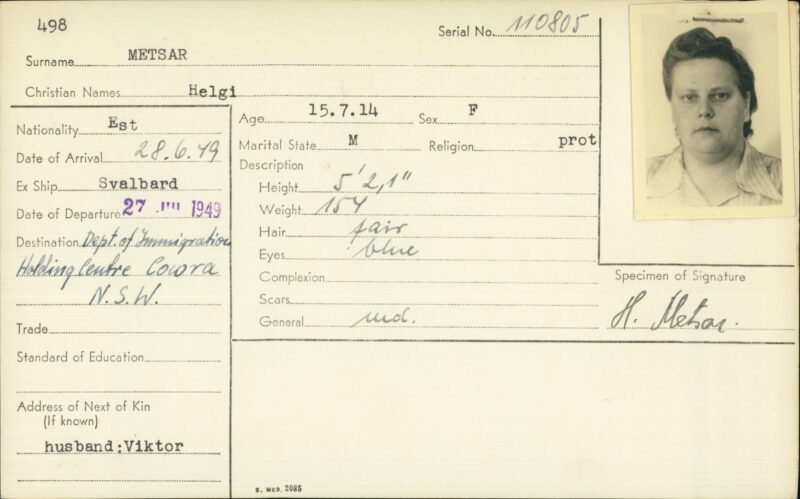 498
Serial No. 110805
Surname METSAR
Christian Names Helgi
Nationality Est
Date of Arrival 28.6.49
Ex Ship Svalbard
Date of Departure 27 JUL 1949
Destination Dept. of Immigration
Holding Centre Cowra
N.S.W.
Trade
Standard of Education
Address of Next of Kin
(If known)
husband:Viktor
Age 15.7.14 Sex F
Marital State M Religion prot
Description
Height 5' 2,1"
Weight 154
Hair fair
Eyes blue
Complexion
Scars
General md.
Specimen of Signature
H. Metsar.
S. MCD. 2085